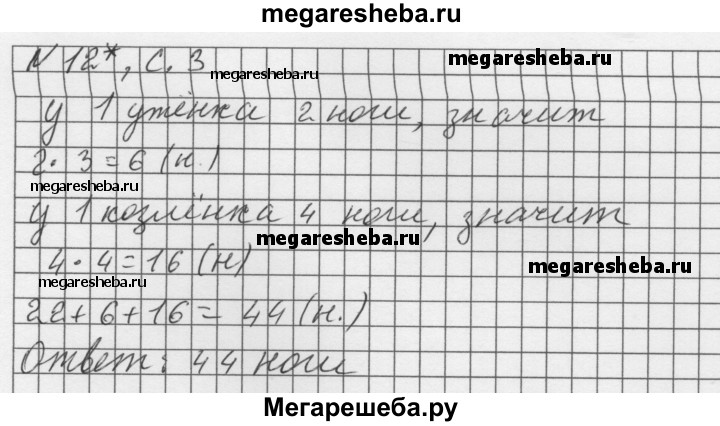 megaresheba.ru
N 12*, с. 3
megaresheba.ru
megaresheba.ru
У 1 утёнка 2 ноги, значит
2 · 3 = 6 (н.)
megaresheba.ru
У 1 козлёнка 4 ноги, значит
megaresheba.ru
4 · 4 = 16 (н)
megaresheba.ru
megaresheba.ru
22 + 6 + 16 = 44 (н.)
Ответ: 44 ноги
Мегарешеба.ру